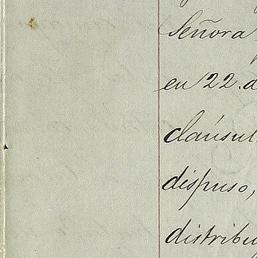 Señora
en 22. d
cláusul
dispuso,
distribu